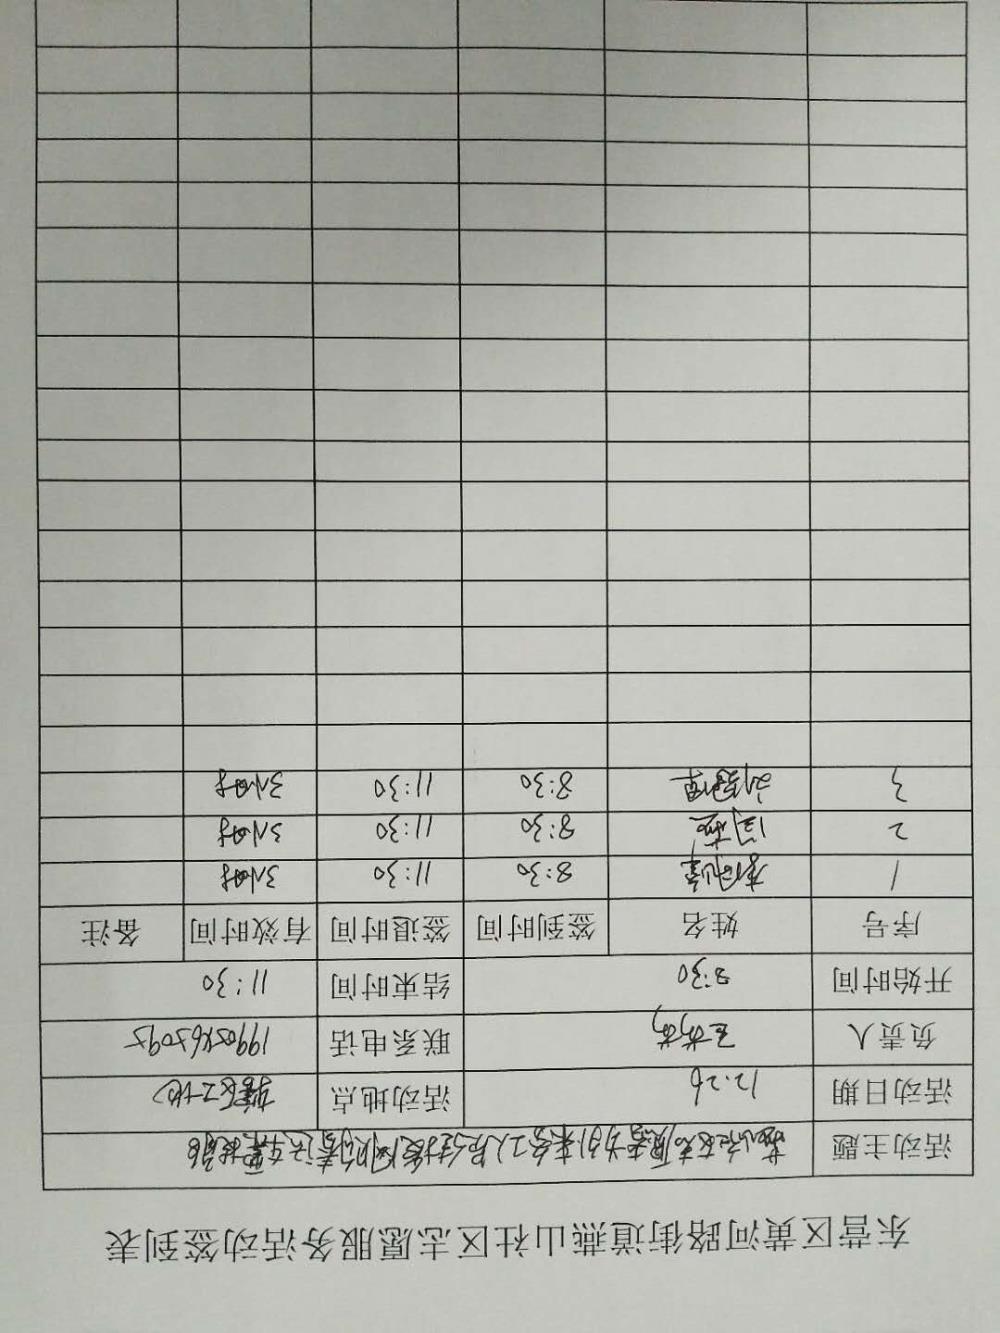 东营区黄河路街道燕山社区志愿服务活动签到表
活动主题 燕山社区志愿者为
活动日期 12.26 活动地点 辖区工地
负责人 联系电话
开始时间 8:30 结束时间 11:30
序号 姓名 签到时间 签退时间 有效时间 备注
1 8:30 11:30 3小时
2 8:30 11:30 3小时
3 8:30 11:30 3小时